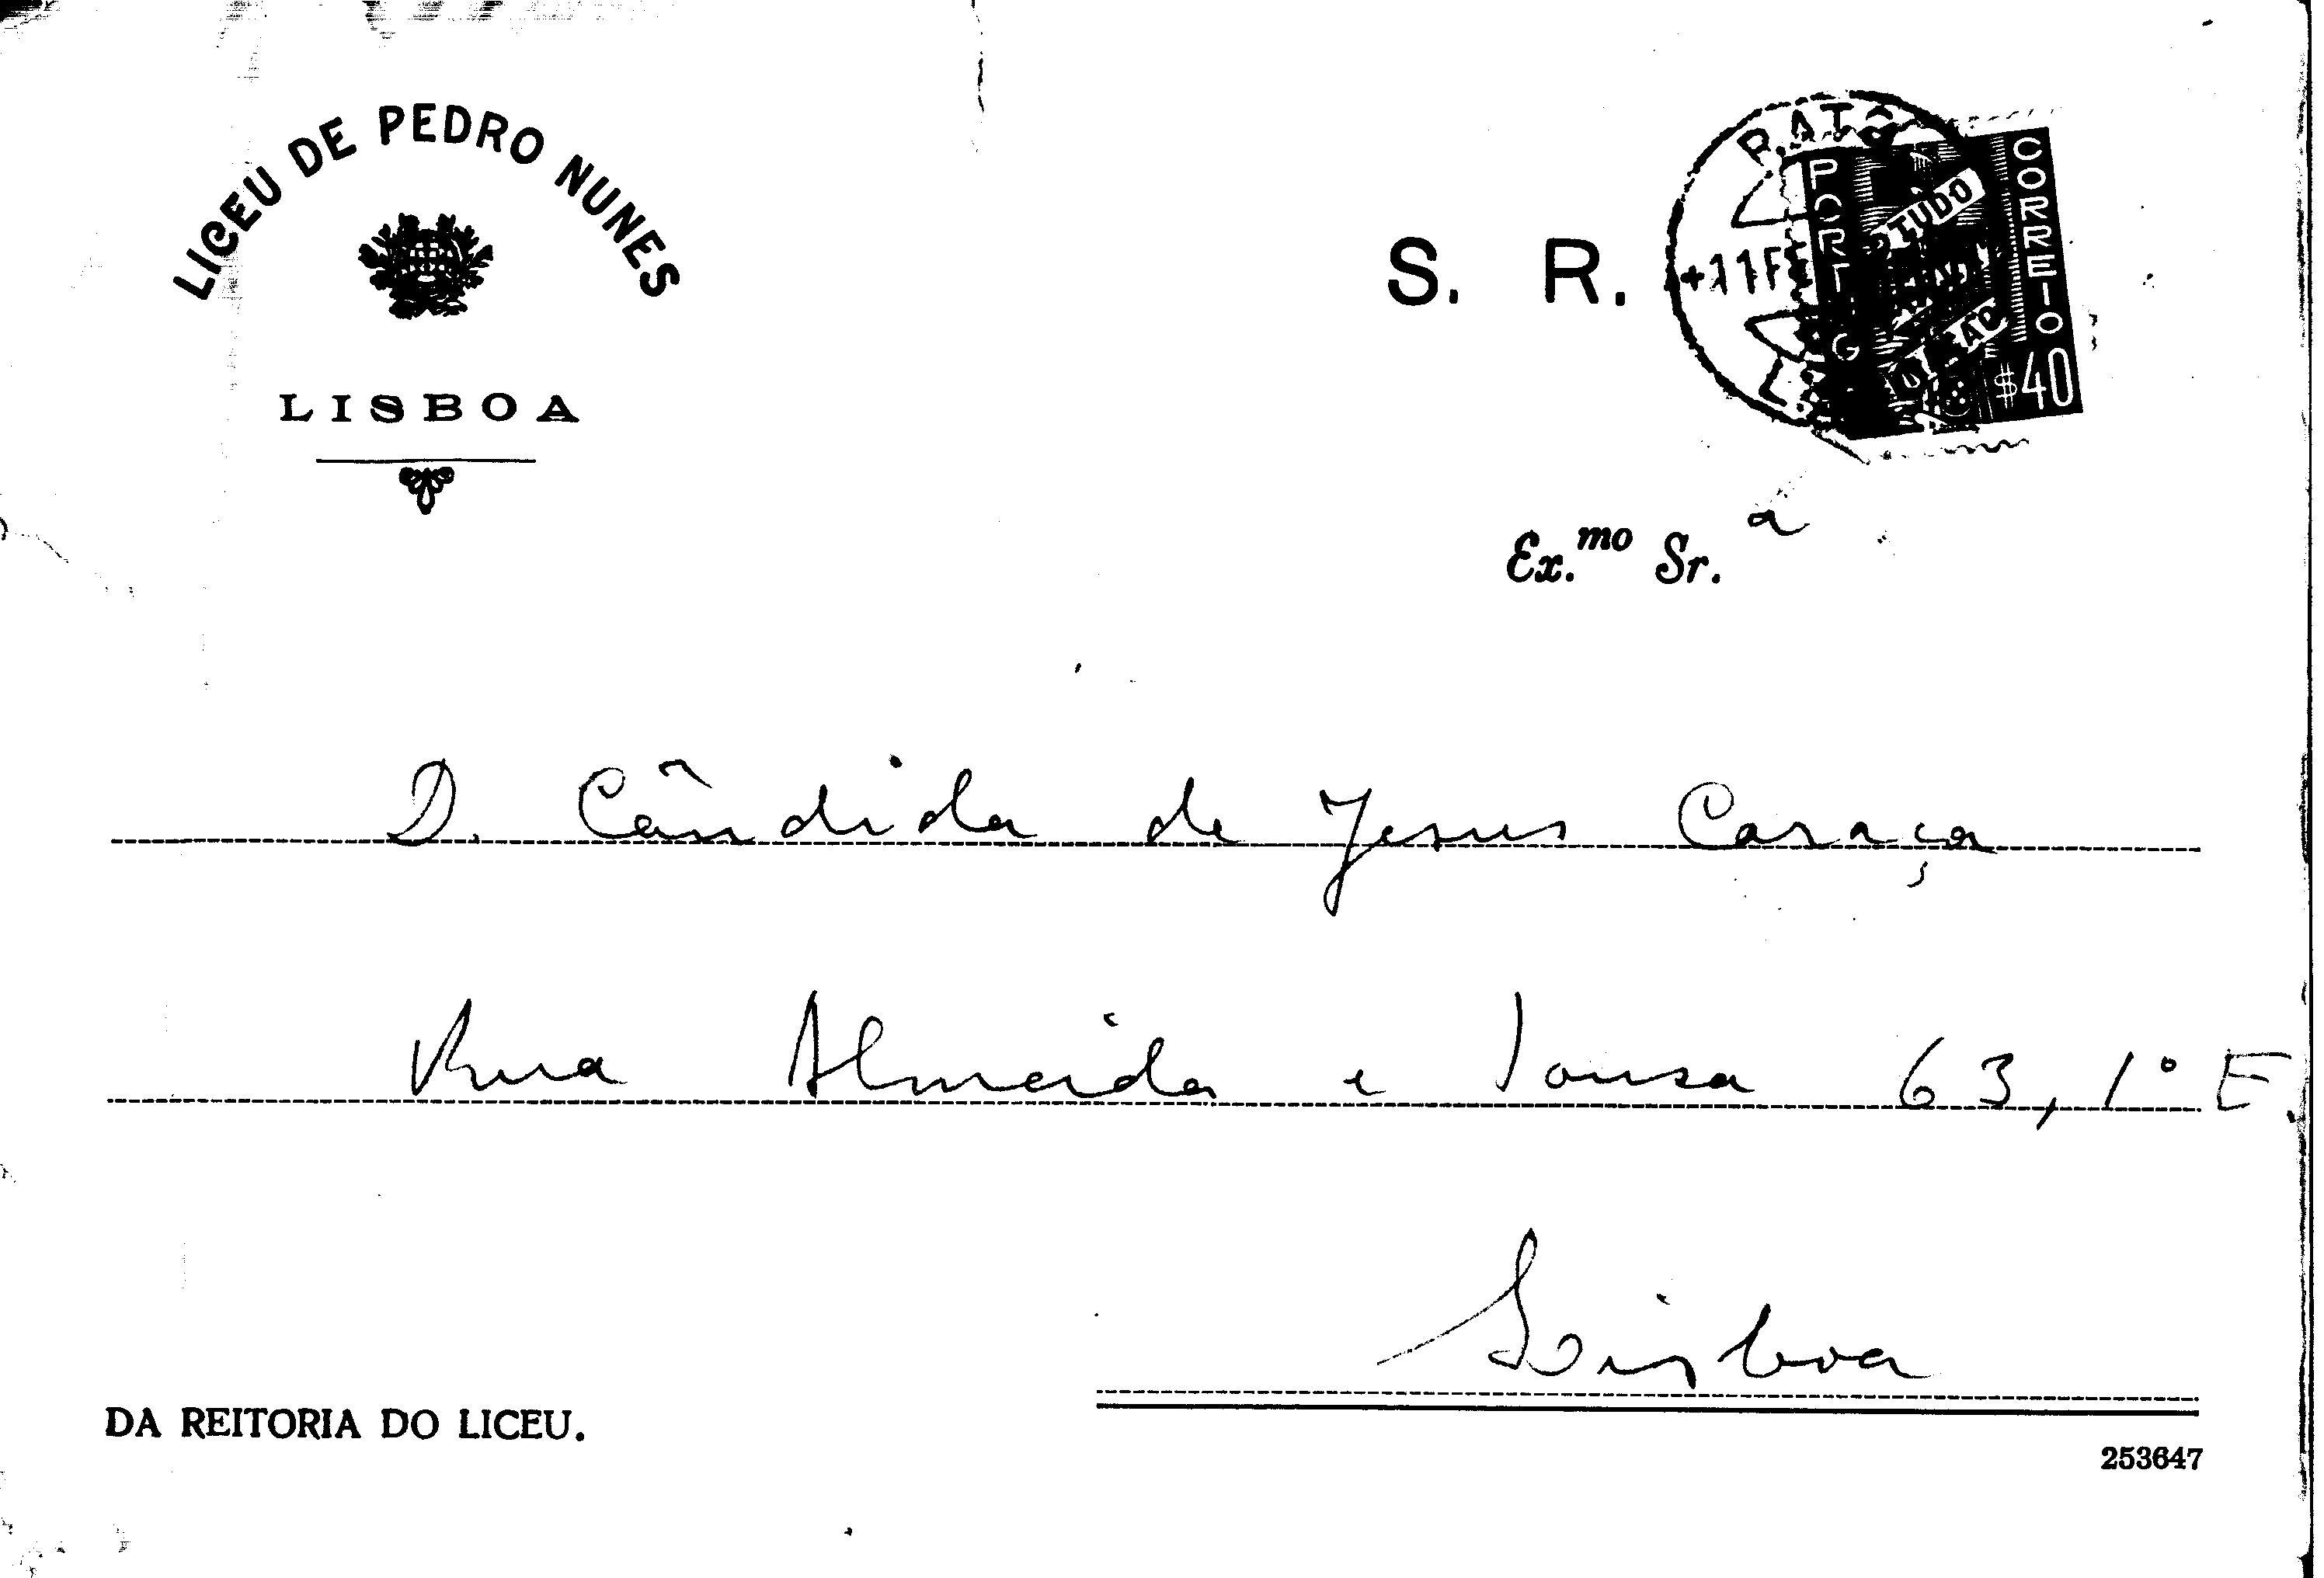 LICEU DE PEDRO NUNES
LISBOA
S. R.
RATO
+11FE
PORTUG
CORREIO
TUDO
$40
Ex.mo Sr.a
D. Cândida de Jesus Caraça
Rua Almeida e Sousa 63, 1º E.
Lisboa
DA REITORIA DO LICEU.
253647